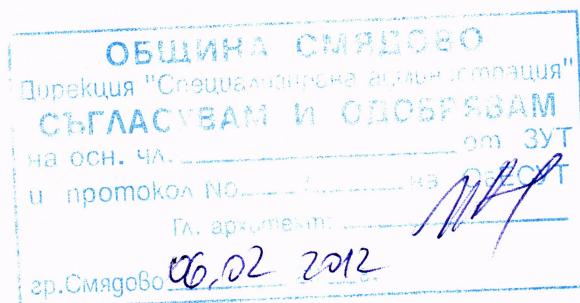 ОБЩИНА СМЯДОВО
Дирекция "Специализирана администрация"
СЪГЛАСУВАМ И ОДОБРЯВАМ
на осн. чл. от ЗУТ
и протокол No. / на ОбЕСУТ
Гл. архитект:
гр.Смядово 06.02 2012